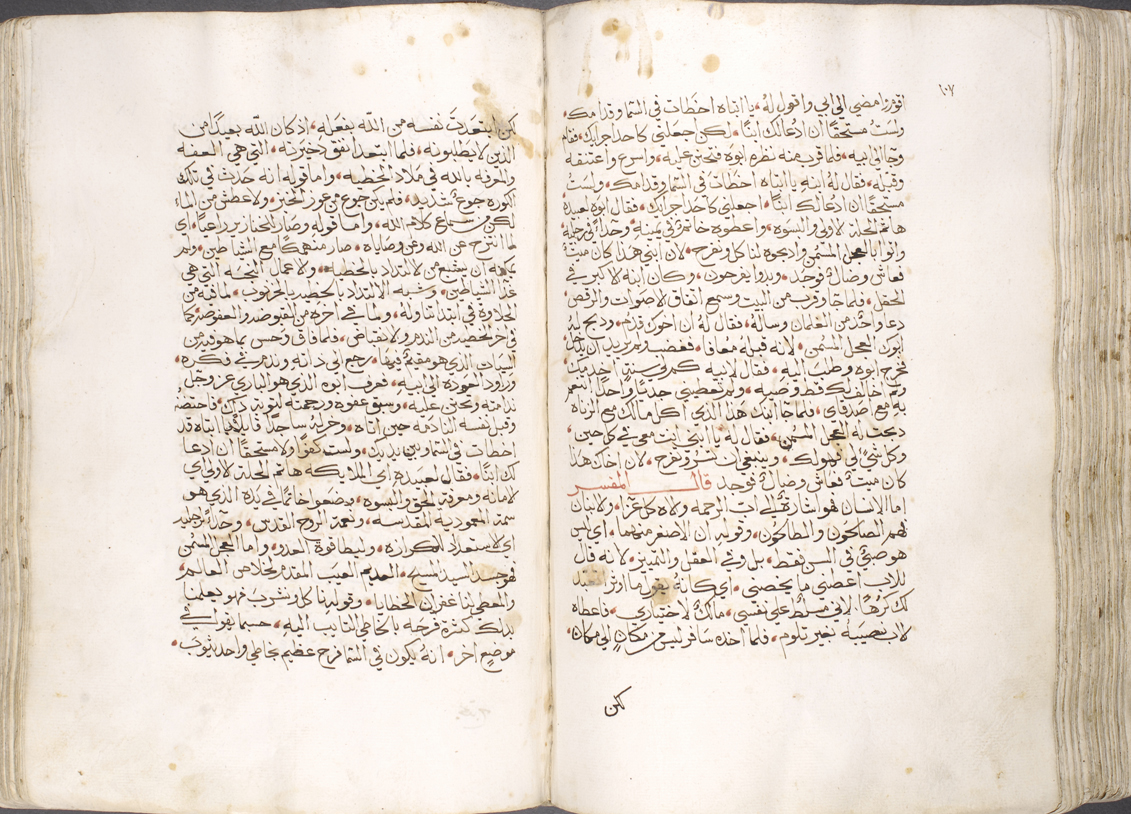 ١٠٧
اقوم وامضي الي ابي واقول له يا ابتاه اخطات في السما وقدامك
ولست مستحقا ان ادعا لك ابنا لكن اجعلني كاحد اجرايك فقام
وجا الي ابيه فلما قرب منه نظره ابوه فتحنن عليه واسرع واعتنقه
وقبله فقال له ابنه يا ابتاه اخطات في السما وقدامك ولست
مستحقا ان ادعا لك ابنا اجعلني كاحد اجرايك فقال ابوه لعبيده
هاتم الحله الاولي والبسوه واعطوه خاتم في يمينه وحذا في رجليه
واتوا بالعجل المسمن واذبحوه لناكل ونفرح لان ابني هذا كان ميت
فعاش وضال فوجد وبدوا يفرحون وكان ابنه الاكبر في
الحقل فلما جا وقرب من البيت وسمع اتفاق الاصوات والرقص
دعا واحد من الغلمان وساله فقال له ان اخوك قدم وذبح له
ابوك العجل المسمن لانه قبله معافا فغضب ولم يريد ان يدخل
فخرج ابوه وطلب اليه فقال لابيه كم لي سنين اخدمك
ولم اخالف لك قط وصيه ولم تعطيني جديا واحدا اتنعم
به مع اصدقاي فلما جا ابنك هذا الذي اكل مالك مع الزناه
ذبحت له العجل المسمن فقال له يا ابني انت معي في كل حين
وكل شي لي فهو لك وينبغي ان تسر وتفرح لان اخاك هذا
كان ميت فعاش وضال فوجد قال المفسر
اما الانسان فهو اشاره الي ات الرحمه ولاه كل عزا والابنان
فهم الصالحون والطالحون وقوله ان الاصغر منهما اي ليس
هو صبي في السن فقط بل وفي العقل والتمييز لانه قال
للاب اعطني ما يخصني اي كانه يقول ما اوثر اتعبد
لك كرها لاني مسلط علي نفسي مالك لاختياري فاعطاه
الاب نصيبه بغير تلوم فلما اخذه سافر ليس من مكان الي مكان
لكن
لكن ابتعدت نفسه من الله بفعله اذ كان الله بعيدا من
الذين لا يطلبونه فلما ابتعد انفق ذخيرته التي هي العفه
والمعرفه بالله في ملاد الخطيه واما قوله انه حدث في تلك
الكوره جوع شديد فلم يكن جوع من عوز الخبز ولا عطش من الماء
لكن من سماع كلام الله واما قوله وصار للخنازير راعيا اي
لما انتزح عن الله وعن وصاياه صار منهمكا مع الشياطين ولم
يمكنه ان يشبع من الالتداد بالخطيه والاعمال النجسه التي هي
غذا الشياطين وشبه الالتداد بالخطيه بالخرنوب لما فيه من
الحلاوه في ابتدا تناوله ولما في اخره من القبوضه والعفوصه كما
في اخر الخطيه من الندم والانقباض فلما فاق وحس بما هو فيه من
السيات الذي هو مقيم فيها رجع الي ذاته وندم في فكره
ورود العوده الي ابيه فعرف ابوه الذي هو الباري عز وجل
ندامته وتحنن عليه وسبق عفوه ورحمته لتوبته تلك فاحتضنه
وقبل نفسه النادمه حين اتاه وخر له ساجدا قايلا يا ابتاه قد
اخطات في السما وبين يديك ولست كفوا ولا مستحقا ان ادعا
لك ابنا فقال لعبيده اي الملايكه هاتم الحله الاولي اي
الامانه ومعرفة الحق والبسوه ويضعوا خاتما في يده الذي هو
سمة المعموديه المقدسه ونعمة الروح القدس وحذا في رجليه
اي الاستعداد للكرازه وليطا قوة العدو واما العجل المسمن
فهو جسد السيد المسيح العديم العيب المقدم لخلاص العالم
والمعطي لنا غفران الخطايا وقوله لناكل ونشرب فهو يعلمنا
بذلك كثرة فرحه بالخاطي التايب اليه حسبما يقول في
موضع اخر انه يكون في السما فرح عظيم بخاطي واحد يتوب